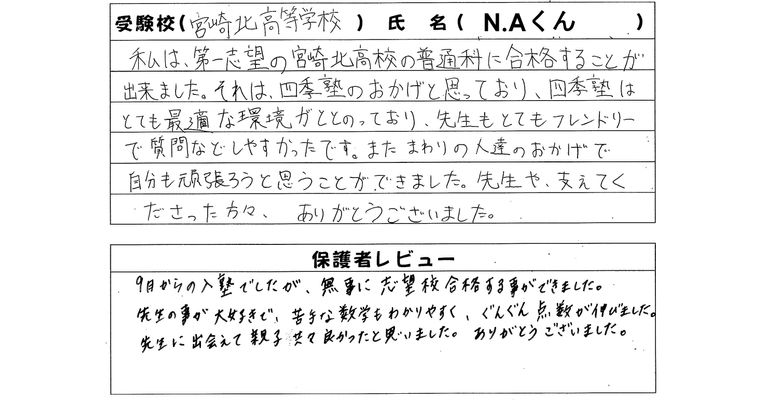 受験校(宮崎北高等学校 ) 氏 名( N.Aくん )
私は、第一志望の宮崎北高校の普通科に合格することが
出来ました。それは、四季塾のおかげと思っており、四季塾は
とても最適な環境がととのっており、先生もとてもフレンドリー
で質問などしやすかったです。またまわりの人達のおかげで
自分も頑張ろうと思うことができました。先生や、支えてく
ださった方々、 ありがとうございました。
保護者レビュー
9月からの入塾でしたが、無事に志望校合格する事ができました。
先生の事が大好きで、苦手な数学もわかりやすく、ぐんぐん点数が伸びました。
先生に出会えて親子共々良かったと思いました。ありがとうございました。